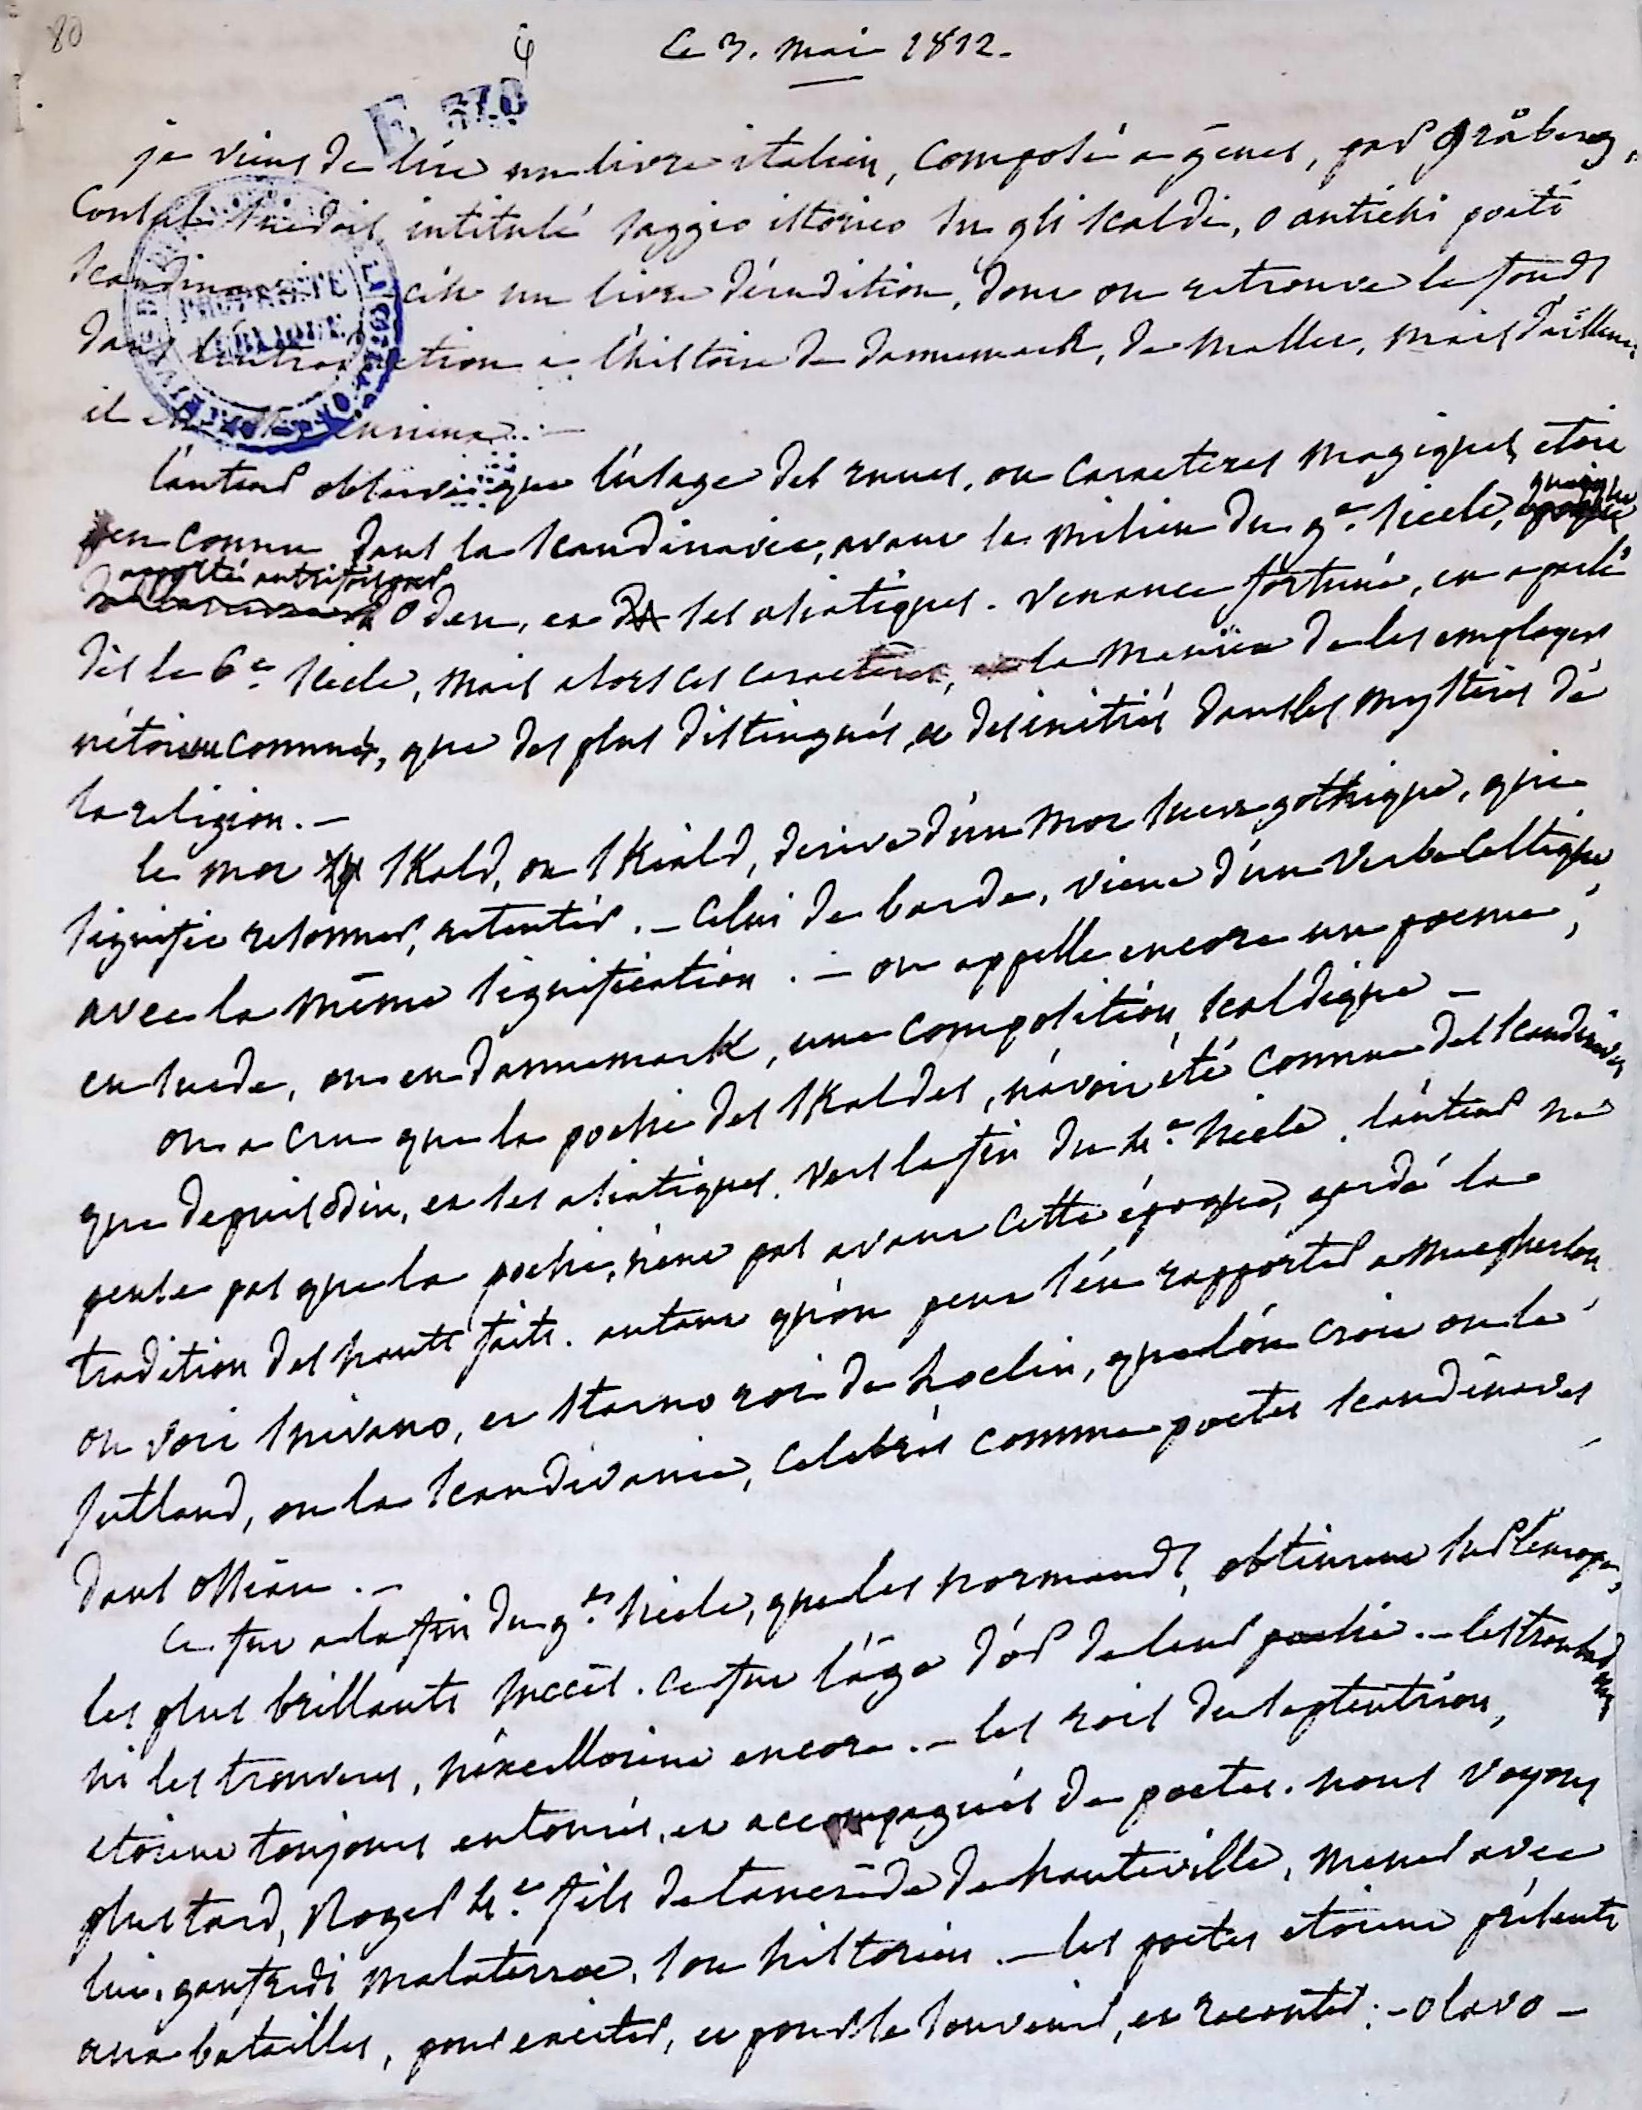 80
le 3. mai 1812.
F. 370
je viens de lire un livre italien, composé a gênes, par gråberg,
Consul suedois intitulé saggio istorico su gli scaldi, o antichi poeti
scandinavi c'est un livre d'érudition, dont on retrouve le fonds
dans l'introduction a l'histoire de dannemarck, de mallet, mais d'ailleurs
il est curieux. —
l'auteur observe que l'usage des runes, ou caracteres magiques, etoit
peu connu dans la scandinavie, avant le milieu du 9e. siecle, quoique
apporté autrefois par Oden, et ses asiatiques. Venance fortuné, en a parlé
dès le 6e. siecle, mais alors ces caractères, la maniere de les employer
n'étoient connus, que des plus distingués, et des initiés dans les mysteres de
la religion. —
le mot skald, ou skiald, derive d'un mot sueo gothique, qui
signifie resonner, retentir. — Celui de barde, vient d'un verbe Celtique,
avec la même signification. — on appelle encore un poeme,
en suede, ou en dannemarck, une composition scaldique —
on a cru que la poesie des skaldes, n'avoit été connue des scandinaves
que depuis odin, et ses asiatiques. vers la fin du 4e. siecle. l'auteur ne
pense pas que la poesie, n'ent pas avant cette époque, gardé la
tradition des hauts faits. autant qu'on peut s'en rapporter a Macpherson
on voit snivano, et starno roi de Loclin, que l'on croit ou le
Jutland, ou la scandivanie, celebrés comme poetes scandinaves
dans ossian. —
ce fut a la fin du 9e. siecle, que les normands, obtinrent sur l'europe,
les plus brillants succès. ce fut l'âge d'or de leur poesie. — les troubadours
ni les trouveres, n'existoient encore. — les rois du septentrion,
etoient toujours entourés, et accompagnés de poetes. nous voyons
plus tard, Roger 1er. fils de tancrède de hauteville, mener avec
lui, gaufredi malaterrae, son historien. — les poetes etoient présents
aux batailles, pour exciter, et pour se souvenir, et raconter. — olavo —